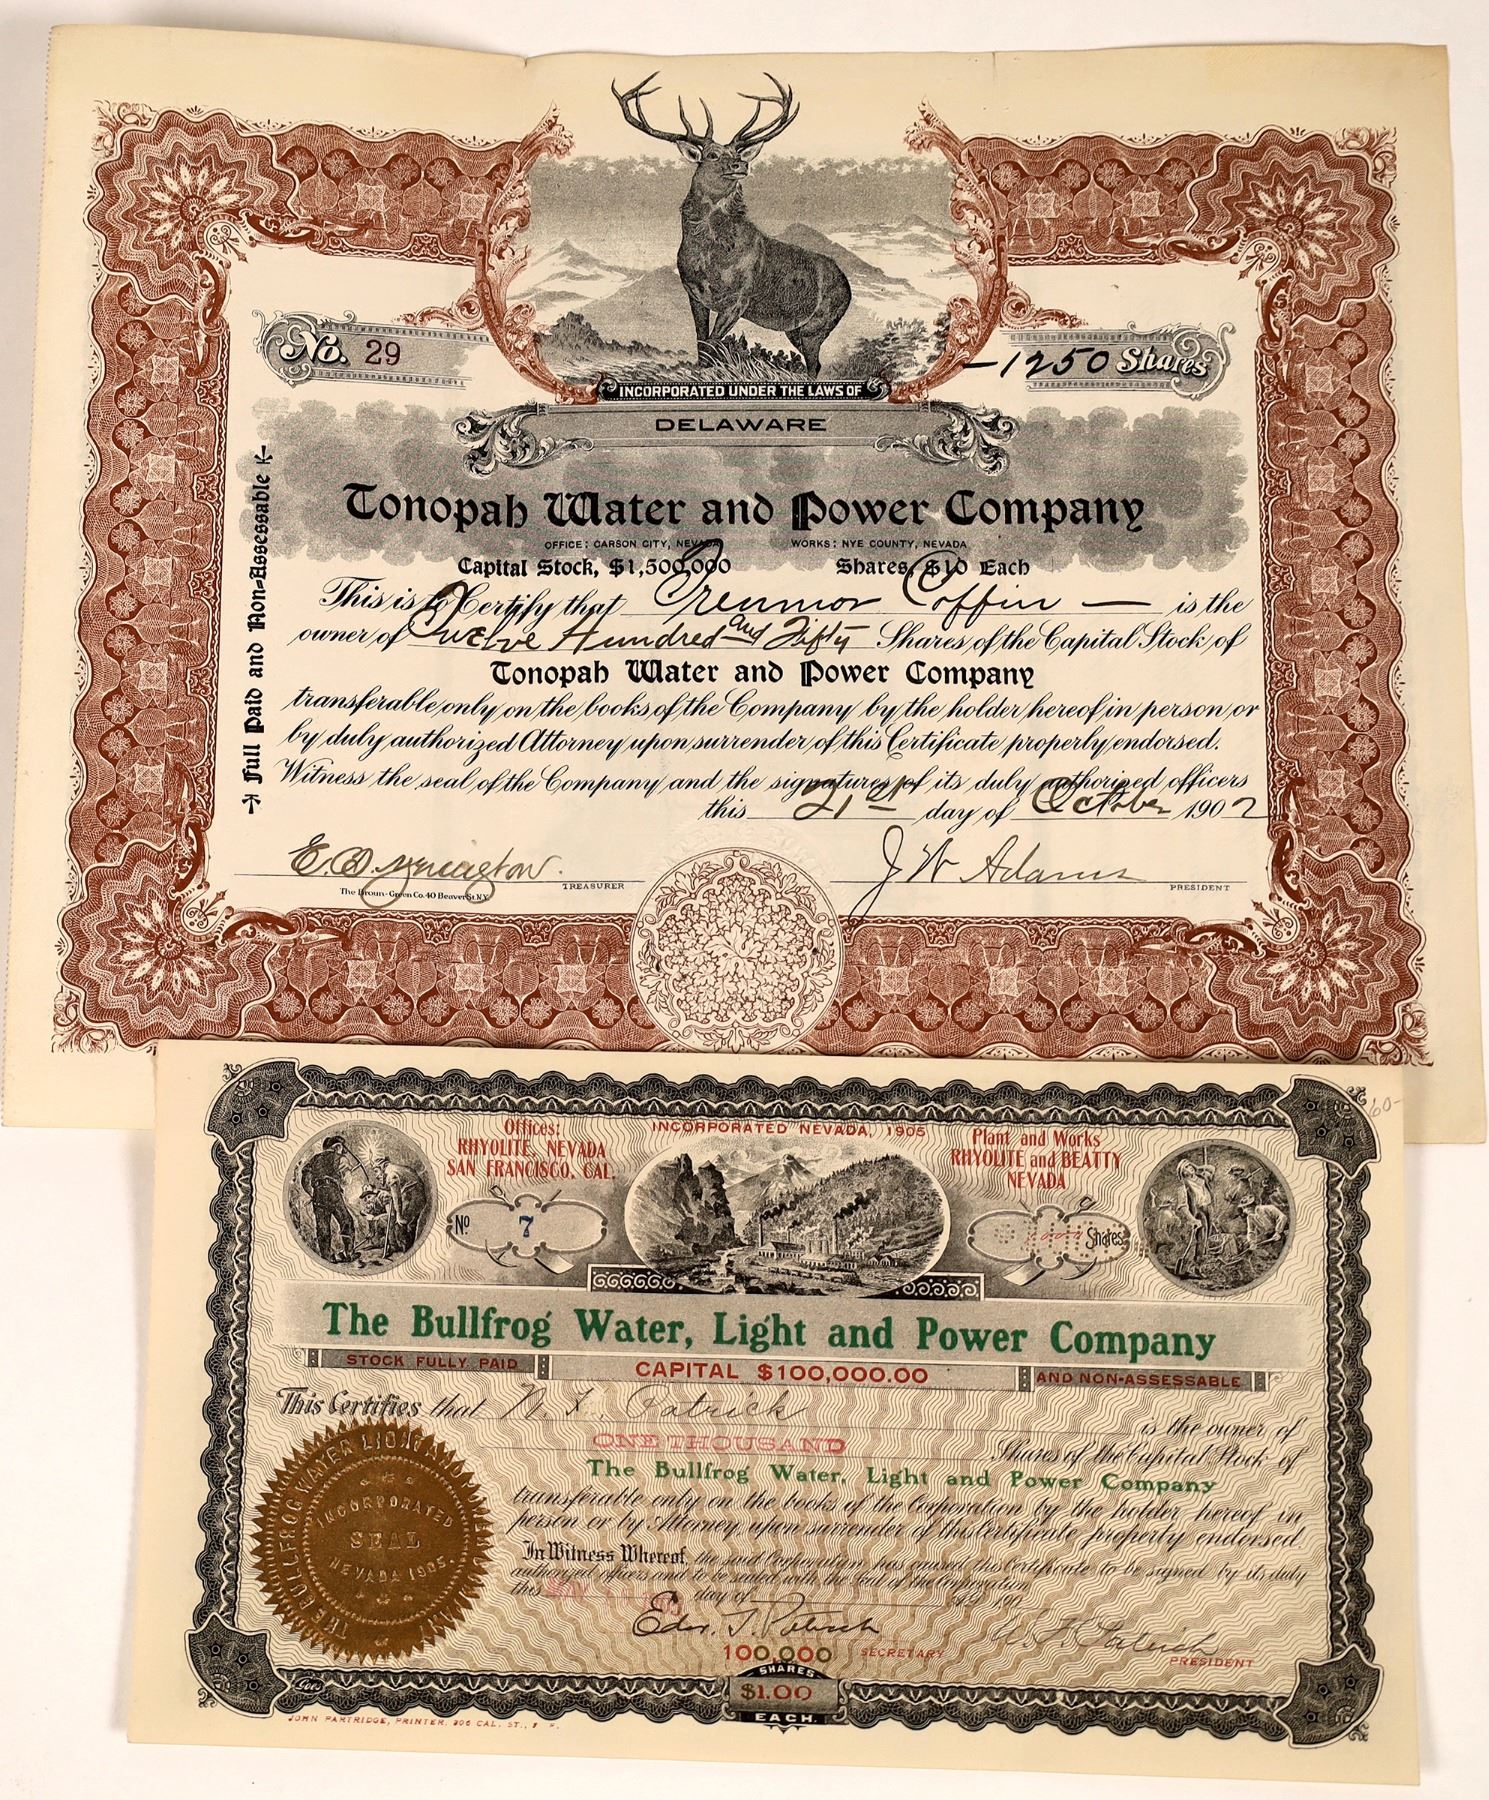 INCORPORATED UNDER THE LAWS OF
DELAWARE
No. 29
1250 Shares
Full Paid and Non-Assessable
Tonopah Water and Power Company
OFFICE: CARSON CITY, NEVADA WORKS: NYE COUNTY, NEVADA
Capital Stock, $1,500,000 Shares, $10 Each
This is to Certify that Coffin is the
owner of Twelve Hundred and Fifty Shares of the Capital Stock of
Tonopah Water and Power Company
transferable only on the books of the Company by the holder hereof in person or
by duly authorized Attorney upon surrender of this Certificate properly endorsed.
Witness the seal of the Company and the signatures of its duly authorized officers
this 21st day of October 1902
TREASURER
J W Adams
PRESIDENT
The Broun-Green Co. 40 Beaver St. N.Y.
60-
Offices:
RHYOLITE, NEVADA
SAN FRANCISCO, CAL.
INCORPORATED NEVADA, 1905
Plant and Works
RHYOLITE and BEATTY
NEVADA
No 7
Shares
The Bullfrog Water, Light and Power Company
STOCK FULLY PAID
CAPITAL $100,000.00
AND NON-ASSESSABLE
This Certifies that Patrick is the owner of
ONE THOUSAND Shares of the Capital Stock of
The Bullfrog Water, Light and Power Company
transferable only on the books of the Corporation by the holder hereof in
person or by Attorney, upon surrender of this Certificate properly endorsed.
In Witness Whereof, the said Corporation has caused this Certificate to be signed by its duly
authorized officers and to be sealed with the Seal of the Corporation
this day of 190
THE BULLFROG WATER LIGHT
INCORPORATED
SEAL
NEVADA 1905.
SECRETARY
PRESIDENT
100,000
SHARES
$1.00
EACH.
Goes
JOHN PARTRIDGE, PRINTER, 306 CAL. ST., S. F.